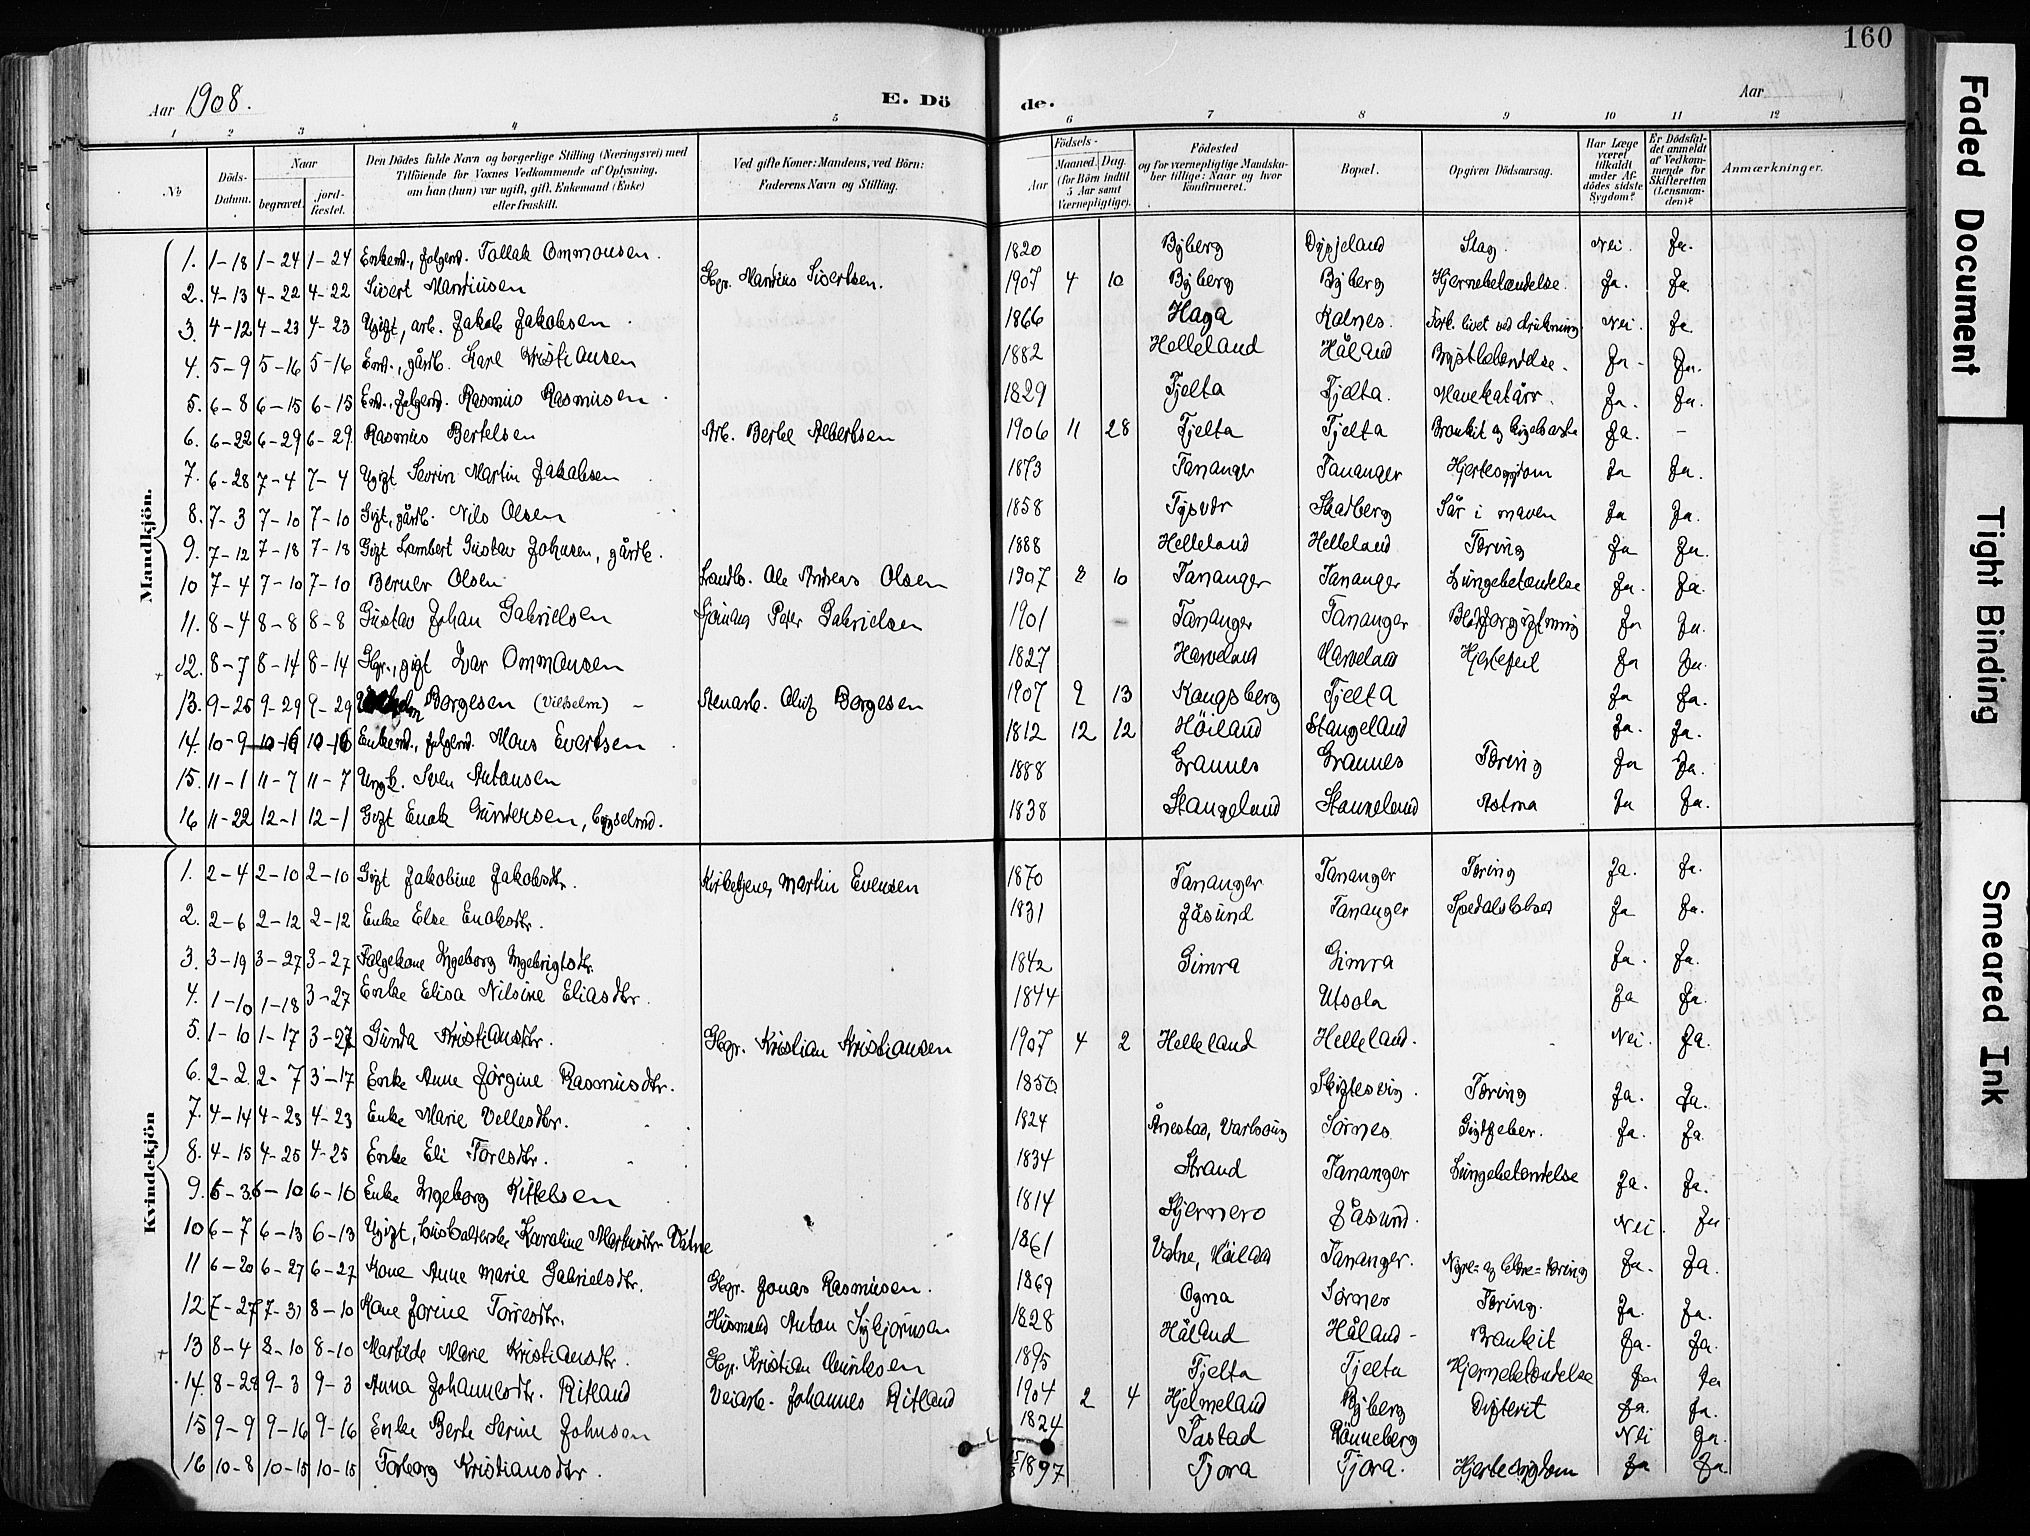 160
Aar 1908.
E. Dö
de.
Aar
1 2 3 4 5 6 7 8 9 10 11 12
No
Döds-Datum.
Naar
begravet.
jord-fæstet.
Den Dödes fulde Navn og borgerlige Stilling (Næringsvei) med Tilföiende for Voxnes Vedkommende af Oplysning, om han (hun) var ugift, gift, Enkemand (Enke) eller fraskilt.
Ved gifte Koner: Mandens, ved Börn: Faderens Navn og Stilling.
Födsels-
Aar
Maaned. Dag.
(for Börn indtil 5 Aar samt Værnepligtige).
Födested og for værnepligtige Mandskaber tillige: Naar og hvor konfirmeret.
Bopæl.
Opgiven Dödsaarsag.
Har Læge været tilkaldt under Afdödes sidste Sygdom?
Er Dödsfaldet anmeldt af Vedkommende for Skifteretten (Lensmanden)?
Anmærkninger.
Mandkjön.
1. 1-18 1-24 1-24 Enkem., folgem. Tollak Ommonsen. 1820 Byberg Dysjeland Slag. Nei. Ja.
2. 4-13 4-22 4-22 Sivert Mandiusen Gbgr. Mandius Sivertsen. 1907 4 10 Byberg Byberg Hjernebetændelse. Ja. Ja.
3. 4-12 4-23 4-23 Ugift, arb. Jakob Jakobsen 1866 Haga Kolnes. Fork. livet ved drukning Nei. Ja.
4. 5-9 5-16 5-16 gårdb. Karl Kristiansen 1882 Helleland Håland Brystbetændelse. Ja. Ja.
5. 6-8 6-15 6-15 folgem. Rasmus Rasmusen 1829 Tjelta Tjelta. Mavekatarr. Ja. Ja.
6. 6-22 6-29 6-29 Rasmus Bertelsen Arb. Bertel Albertsen 1906 11 28 Tjelta Tjelta Ja. -
7. 6-28 7-4 7-4 Ugift Sevrin Martin Jakobsen 1873 Tananger Tananger Hjertesygdom Ja Ja.
8. 7-3 7-10 7-10 Gift, gårdb. Nils Olsen 1858 Tysvær Skadberg Sår i maven Ja Ja.
9. 7-12 7-18 7-18 Gift Lambert Gustav Johnsen, gårdb. 1888 Helleland Helleland Tæring Ja Ja.
10 7-4 7-10 7-10 Berner Olsen Landb. Ole Andreas Olsen 1907 8 10 Tananger Tananger Lungebetændelse Ja. Ja.
11. 8-4 8-8 8-8 Gustav Johan Gabrielsen Sjömann Peter Gabrielsen 1901 - Tananger Tananger Blodforgiftning Ja Ja.
12. 8-7 8-14 8-14 Gbgr., gift Ivar Ommonsen 1827 Harveland Harveland Hjertefeil Ja Ja.
13. 9-25 9-29 9-29 Borgesen (Vilhelm) - Stenarb. Oluf Borgesen 1907 2 13 Kongsberg Tjelta Ja Ja.
14. 10-9 10-16 10-16 Enkem., folgem. Mons Evertsen 1812 12 12 Höiland Stangeland Ja. Ja.
15. 11-1 11-7 11-7 Ungk. Sven Antonsen 1888 Grannes Grannes Tæring Ja Ja.
16 11-22 12-1 12-1 Gift Enok Gundersen, 1838 Stangeland Stangeland Astma Ja Ja.
Kvindekjön
1. 2-4 2-10 2-10 Gift Jakobine Jakobsdtr. Kirketjener Martin Evensen 1870 Tananger Tananger Tæring Ja. Ja.
2. 2-6 2-12 2-12 Enke Else Enoksdtr. 1831 Jåsund Tananger Spedalskhed Ja Ja.
3. 3-19 3-27 3-27 Folgekone Ingeborg Ingebrigtsdtr. 1842 Gimra Gimra Ja. Ja.
4. 1-10 1-18 3-27 Enke Elisa Nilsine Eliasdtr. 1844 Utsola Ja Ja.
5. 1-10 1-17 3-27 Gunda Kristiansdtr. Gbgr. Kristian Kristiansen 1907 4 2 Helleland Helleland. Nei. Ja.
6. 2-2. 2-7 3-17 Enke Anne Jorgine Rasmusdtr. 1850 Skiftesvig. Tæring Ja. Ja.
7. 4-14 4-23 4-23 Enke Marie Vellesdtr. 1824 Ånestad, Varhoug Sörnes Gigtfeber. Ja. Ja.
8. 4-15 4-25 4-25 Enke Eli Toresdtr. 1834 Strand Tananger Lungebetændelse Ja. Ja.
9. 6-3 6-10 6-10 Enke Ingeborg Kittelsen 1814 Stjernerø Jåsund. Nei. Ja
10 6-7 6-13 6-13 Ugift, husholderske Karoline Markusdtr Vatne 1861 Vatne, Höiland Tananger. Nyre- og blære-tæring Ja. Ja.
11 6-20 6-27 6-27 Kone Anne Marie Gabrielsdtr. Gbgr. Jonas Rasmusen. 1869 Ogna Sörnes Tæring. Ja. Ja.
12 7-27 7-31 8-10 Kone Jorine Torresdtr. Husmand Anton 1828 Håland Håland - Bronkit Ja. Ja.
13 8-4 8-10 8-10 Martilde Marie Kristiansdtr. Gbgr. Kristian Henriksen 1895 Tjelta Tjelta Hjernebetændelse Ja Ja
14. 8-28 9-3 9-3 Anna Johannesdtr. Ritland Veiarb. Johannes Ritland 1904 2 4 Hjelmeland Byberg Difterit Ja. Ja.
15 9-9 9-16 9-16 Enke Berte Serine Johnsen 1824 Tastad Rönneberg Nei Ja.
16 10-8 10-15 10-15 Torborg Kristiansdtr. 1897 Tjora Tjora. Hjertesygdom Ja Ja
Faded Document
Tight Binding
Smeared Ink